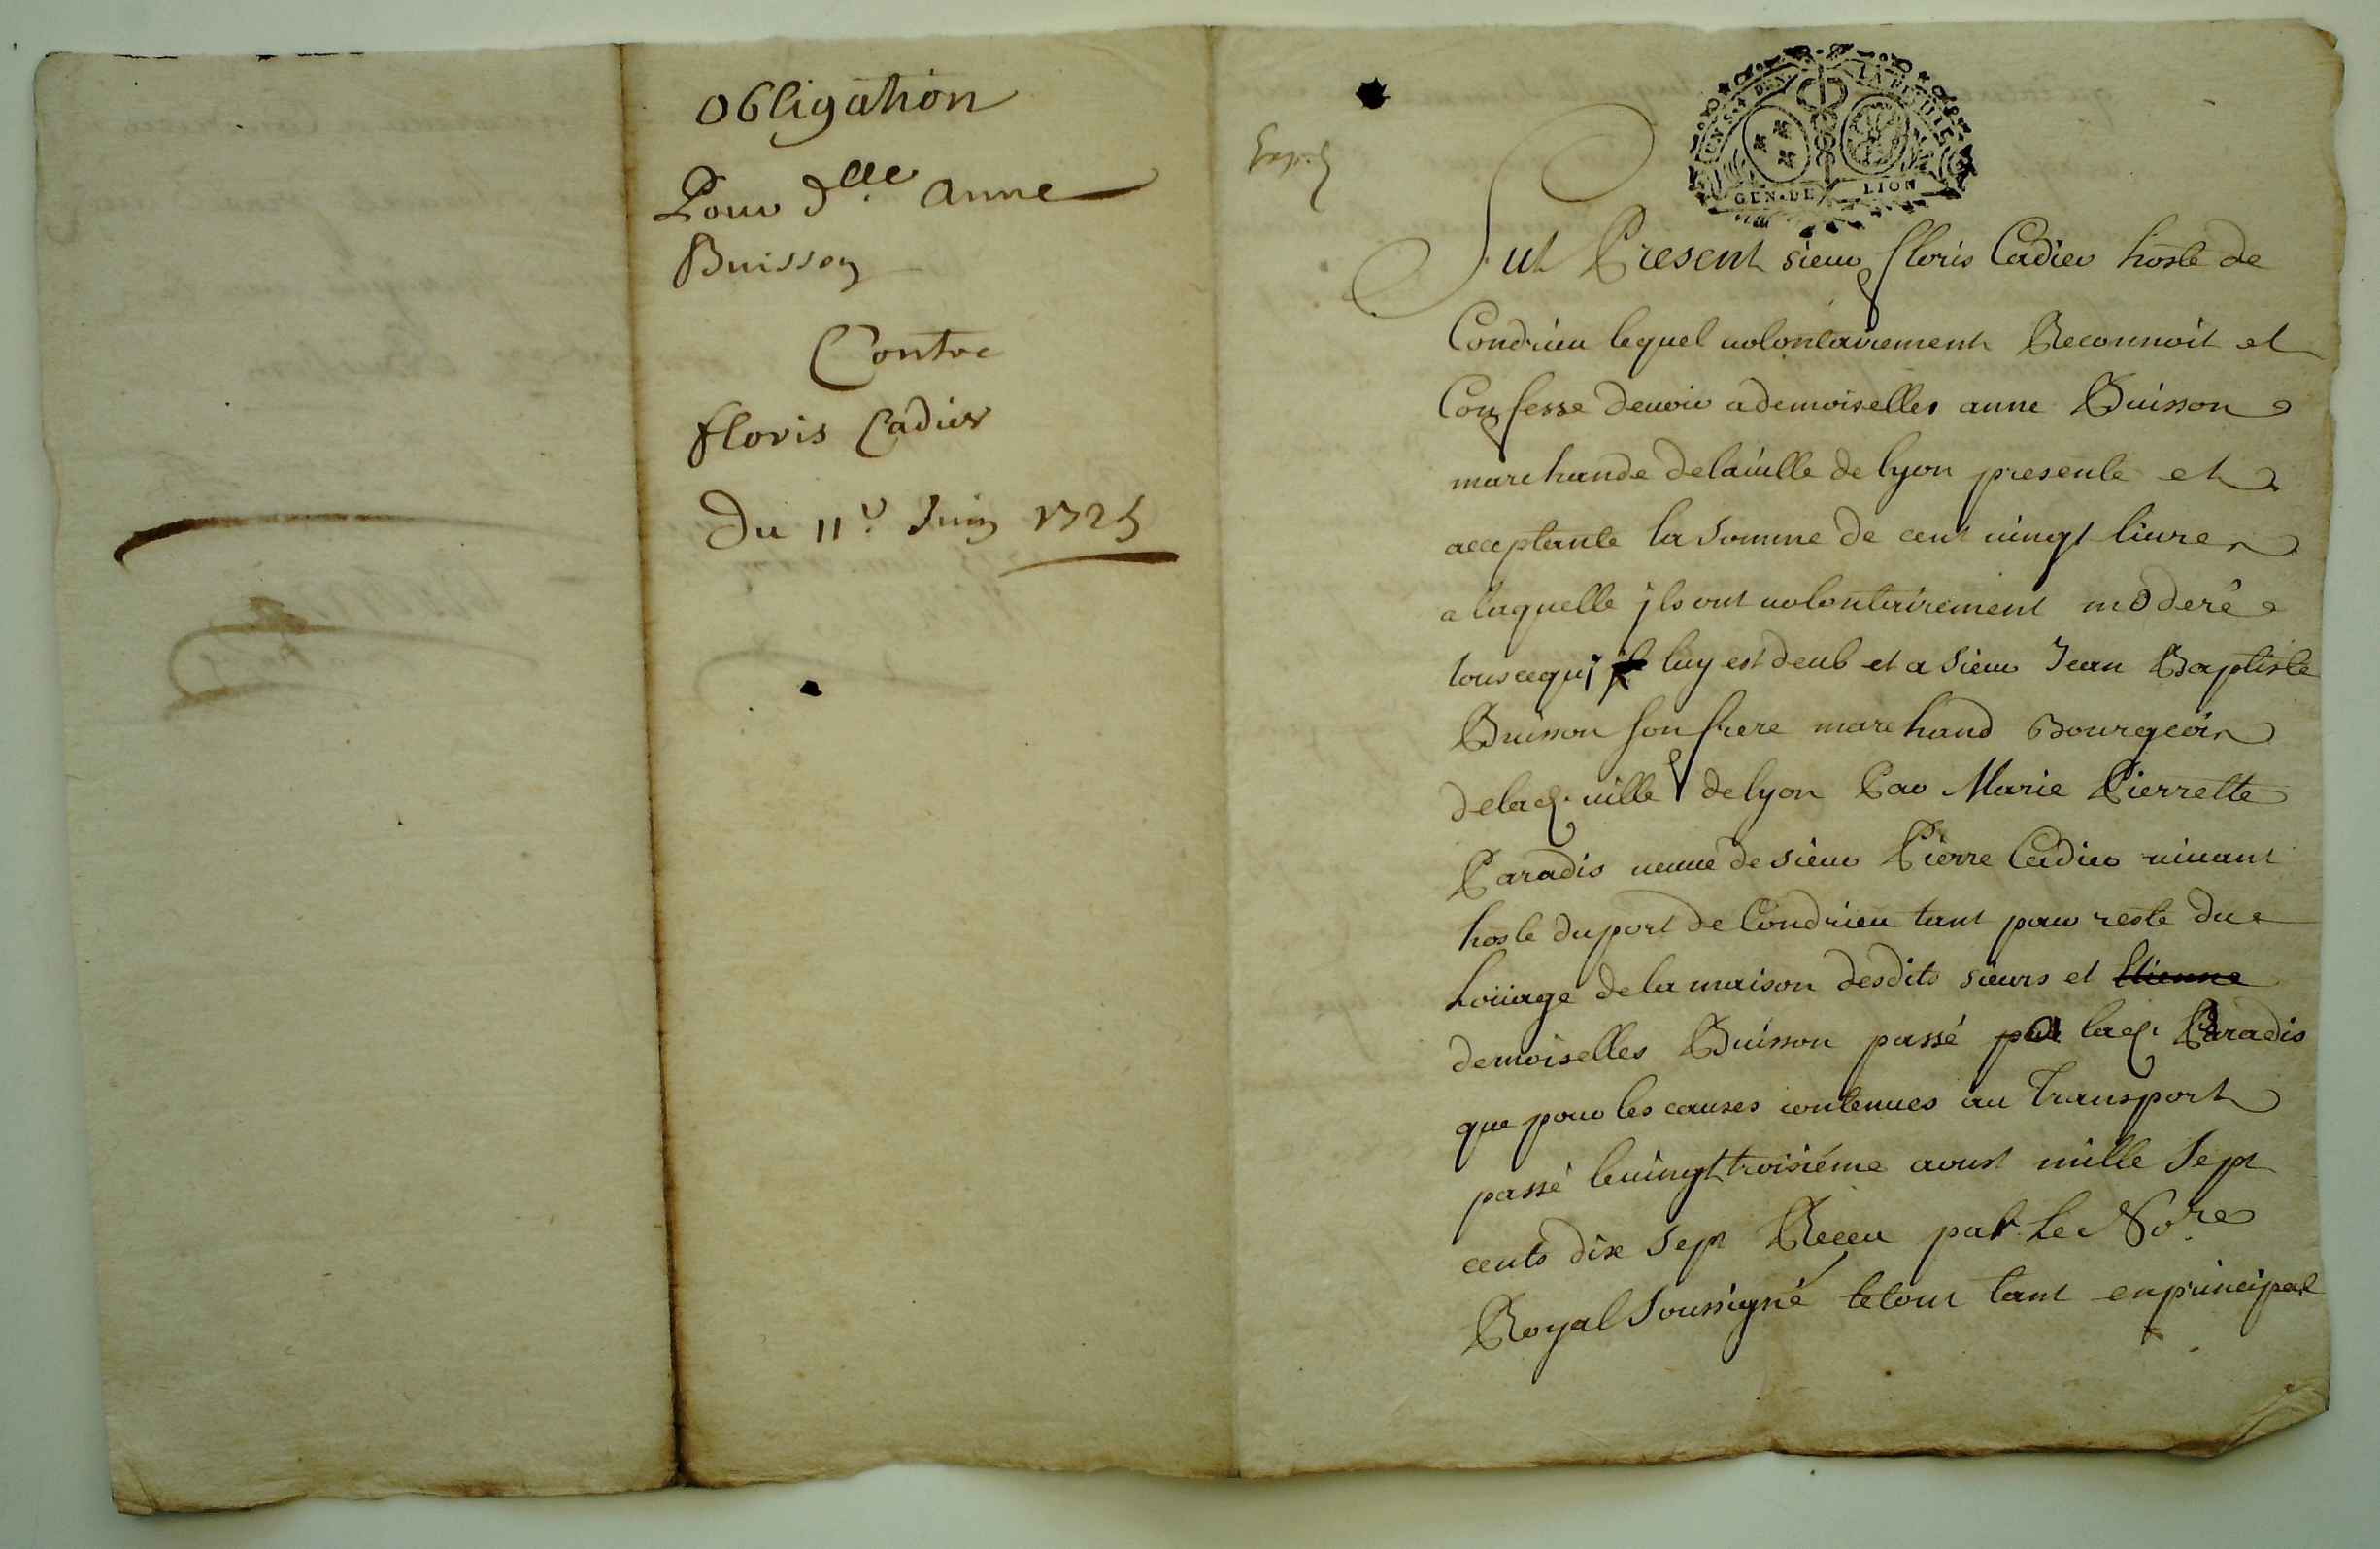 Obligation
Pour dlle. anne
Buisson
Contre
floris Cadier
Du 11e. Juin 1725
GEN. DE LION
Fut Present sieur floris Cadier hoste de
Condrieu lequel uolontairement Reconnoit et
Confesse deuoir a demoiselles anne Buisson
marchande de la uille de lyon presente et
acceptante la somme de cent uingt liures
a laquelle jls ont uolontairement moderé
tous ce qui luy est deub et a sieur Jean Baptiste
Buisson son frere marchand Bourgeois
de lad. uille de lyon Par Marie Pierrette
Paradis ueuue de sieur Pierre Cadier uiuant
hoste du port de Condrieu tant pour reste du
Loüage de la maison desdits sieurs et Etienne
demoiselles Buisson passé a lad. Paradis
que pour les causes contenues au Transport
passé le uingt troisiéme aoust mille sept
cents dix sept Receu par Le No.re
Royal soussigné le tout tant en principal